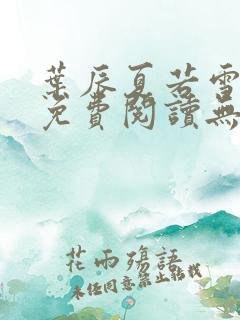 葉辰夏若雪
免費閱讀無
花雨殤語
未經同意禁止轉載